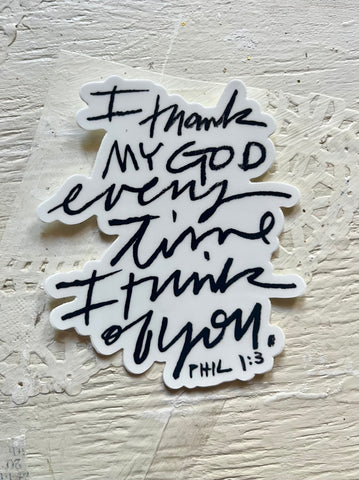 I thank
MY GOD
every
time
I think
of you.
PHIL 1:3